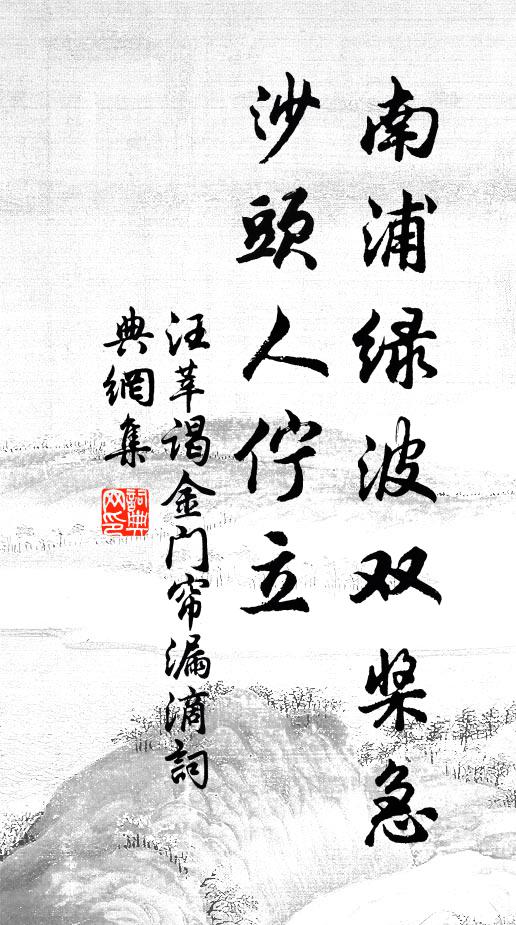 南浦绿波双桨急
沙頭人佇立
汪莘谒金门帘漏滴詞
典網集
詞典網印